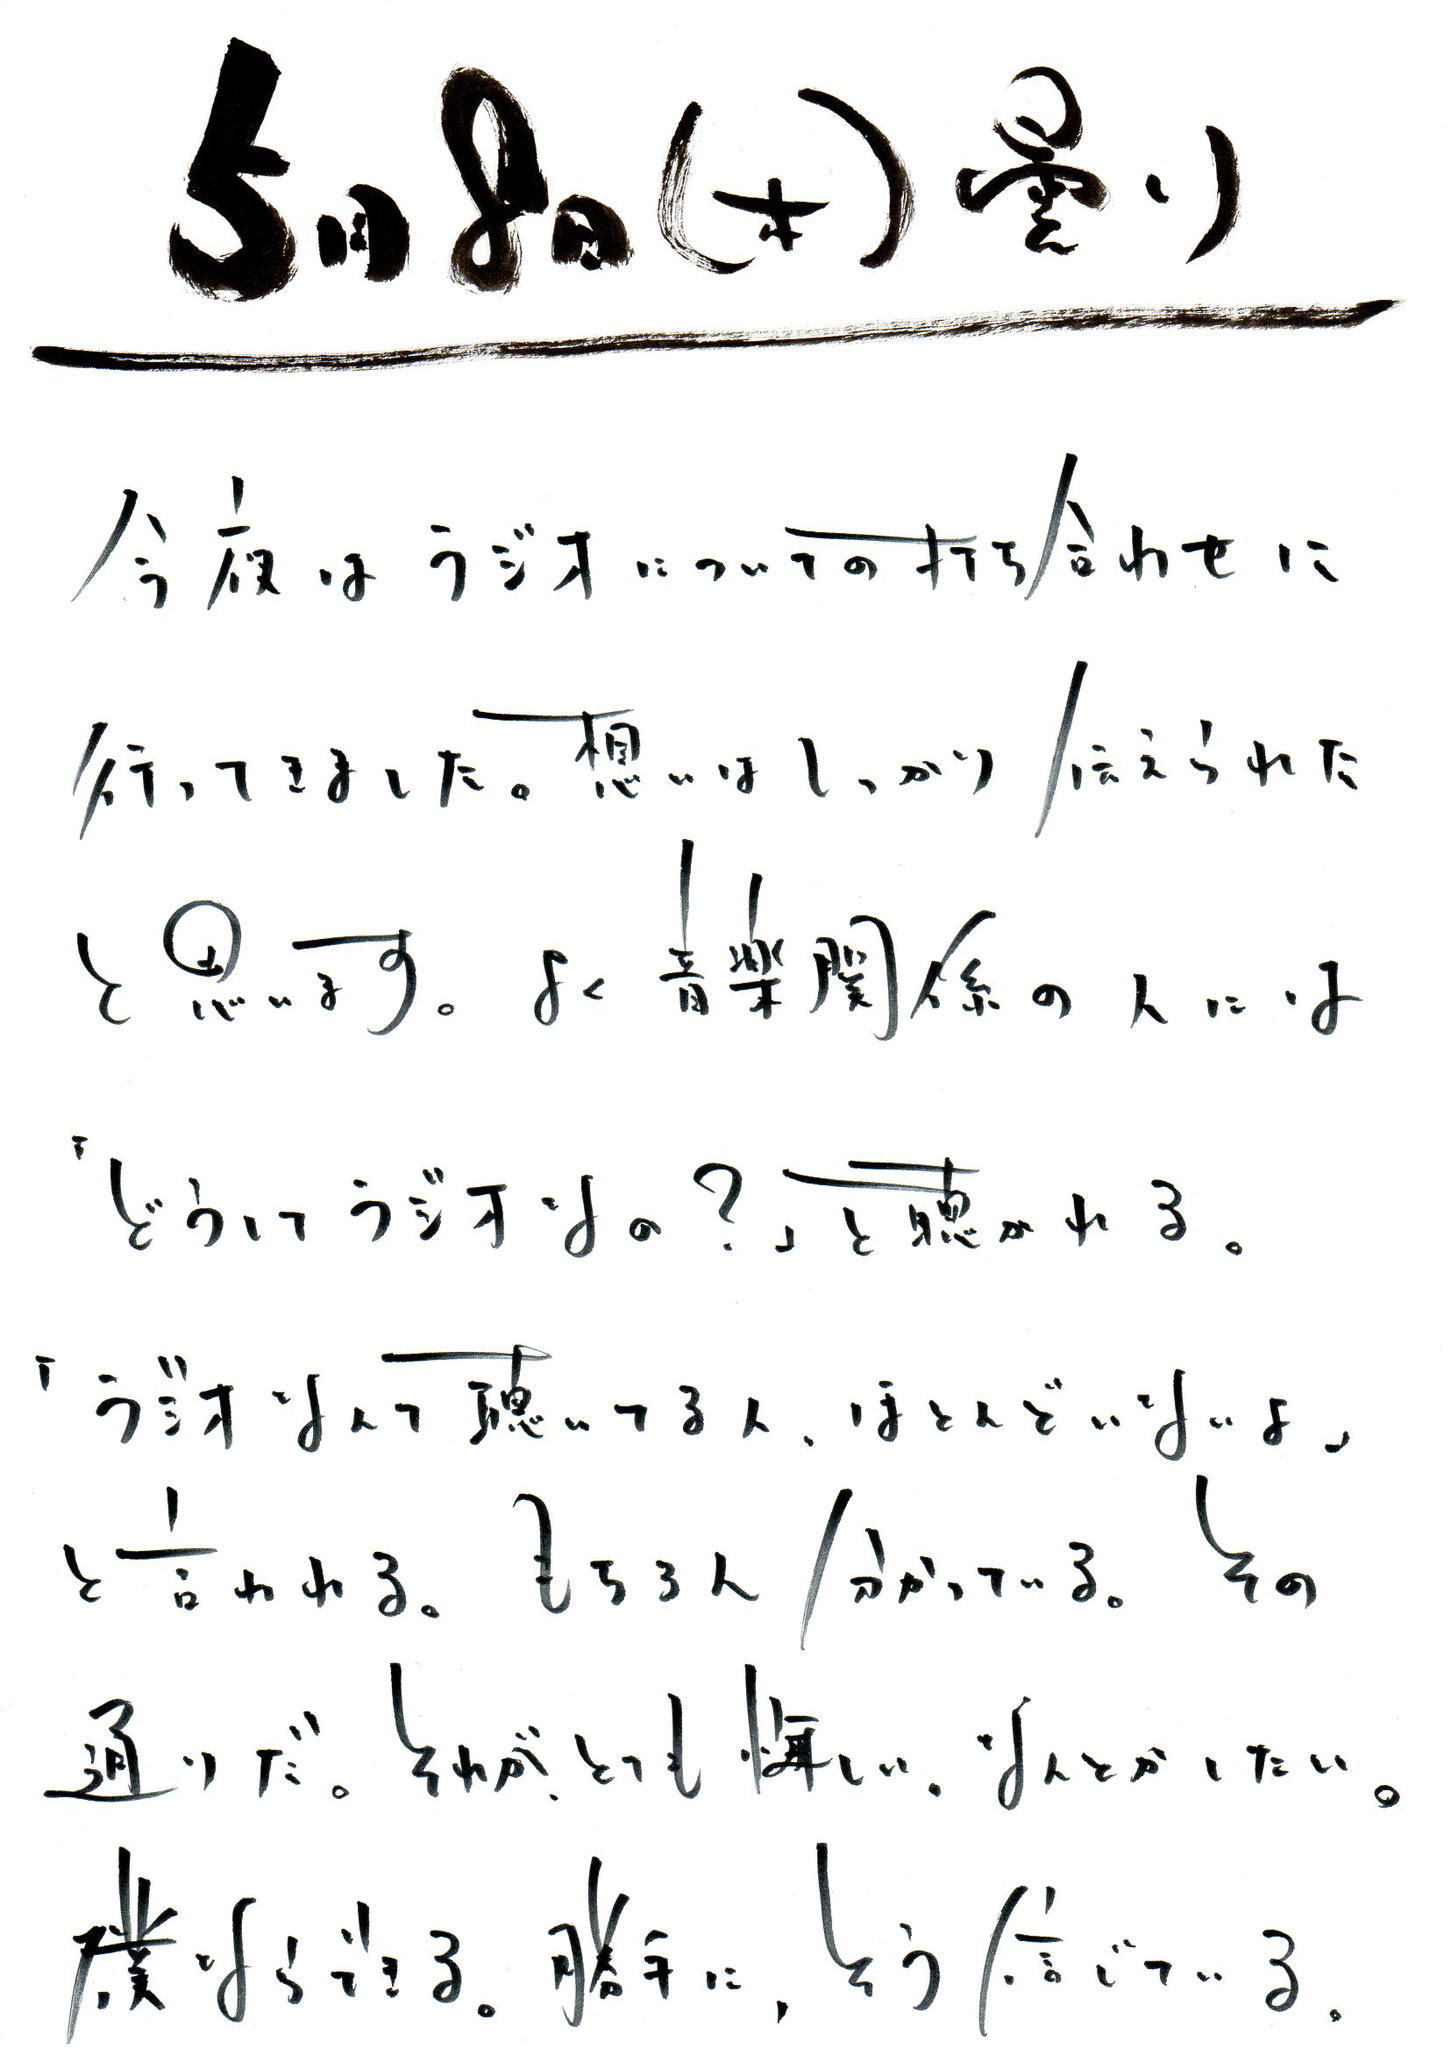 5月8日(木)曇り
今夜はラジオについての打ち合わせに
行ってきました。想いはしっかり伝えられた
と思います。よく音楽関係の人には
「どうしてラジオなの?」と聴かれる。
「ラジオなんて聴いてる人、ほとんどいないよ」
と言われる。もちろん分かっている。その
通りだ。それが、とても悔しい。なんとかしたい。
僕ならできる。勝手に、そう信じている。